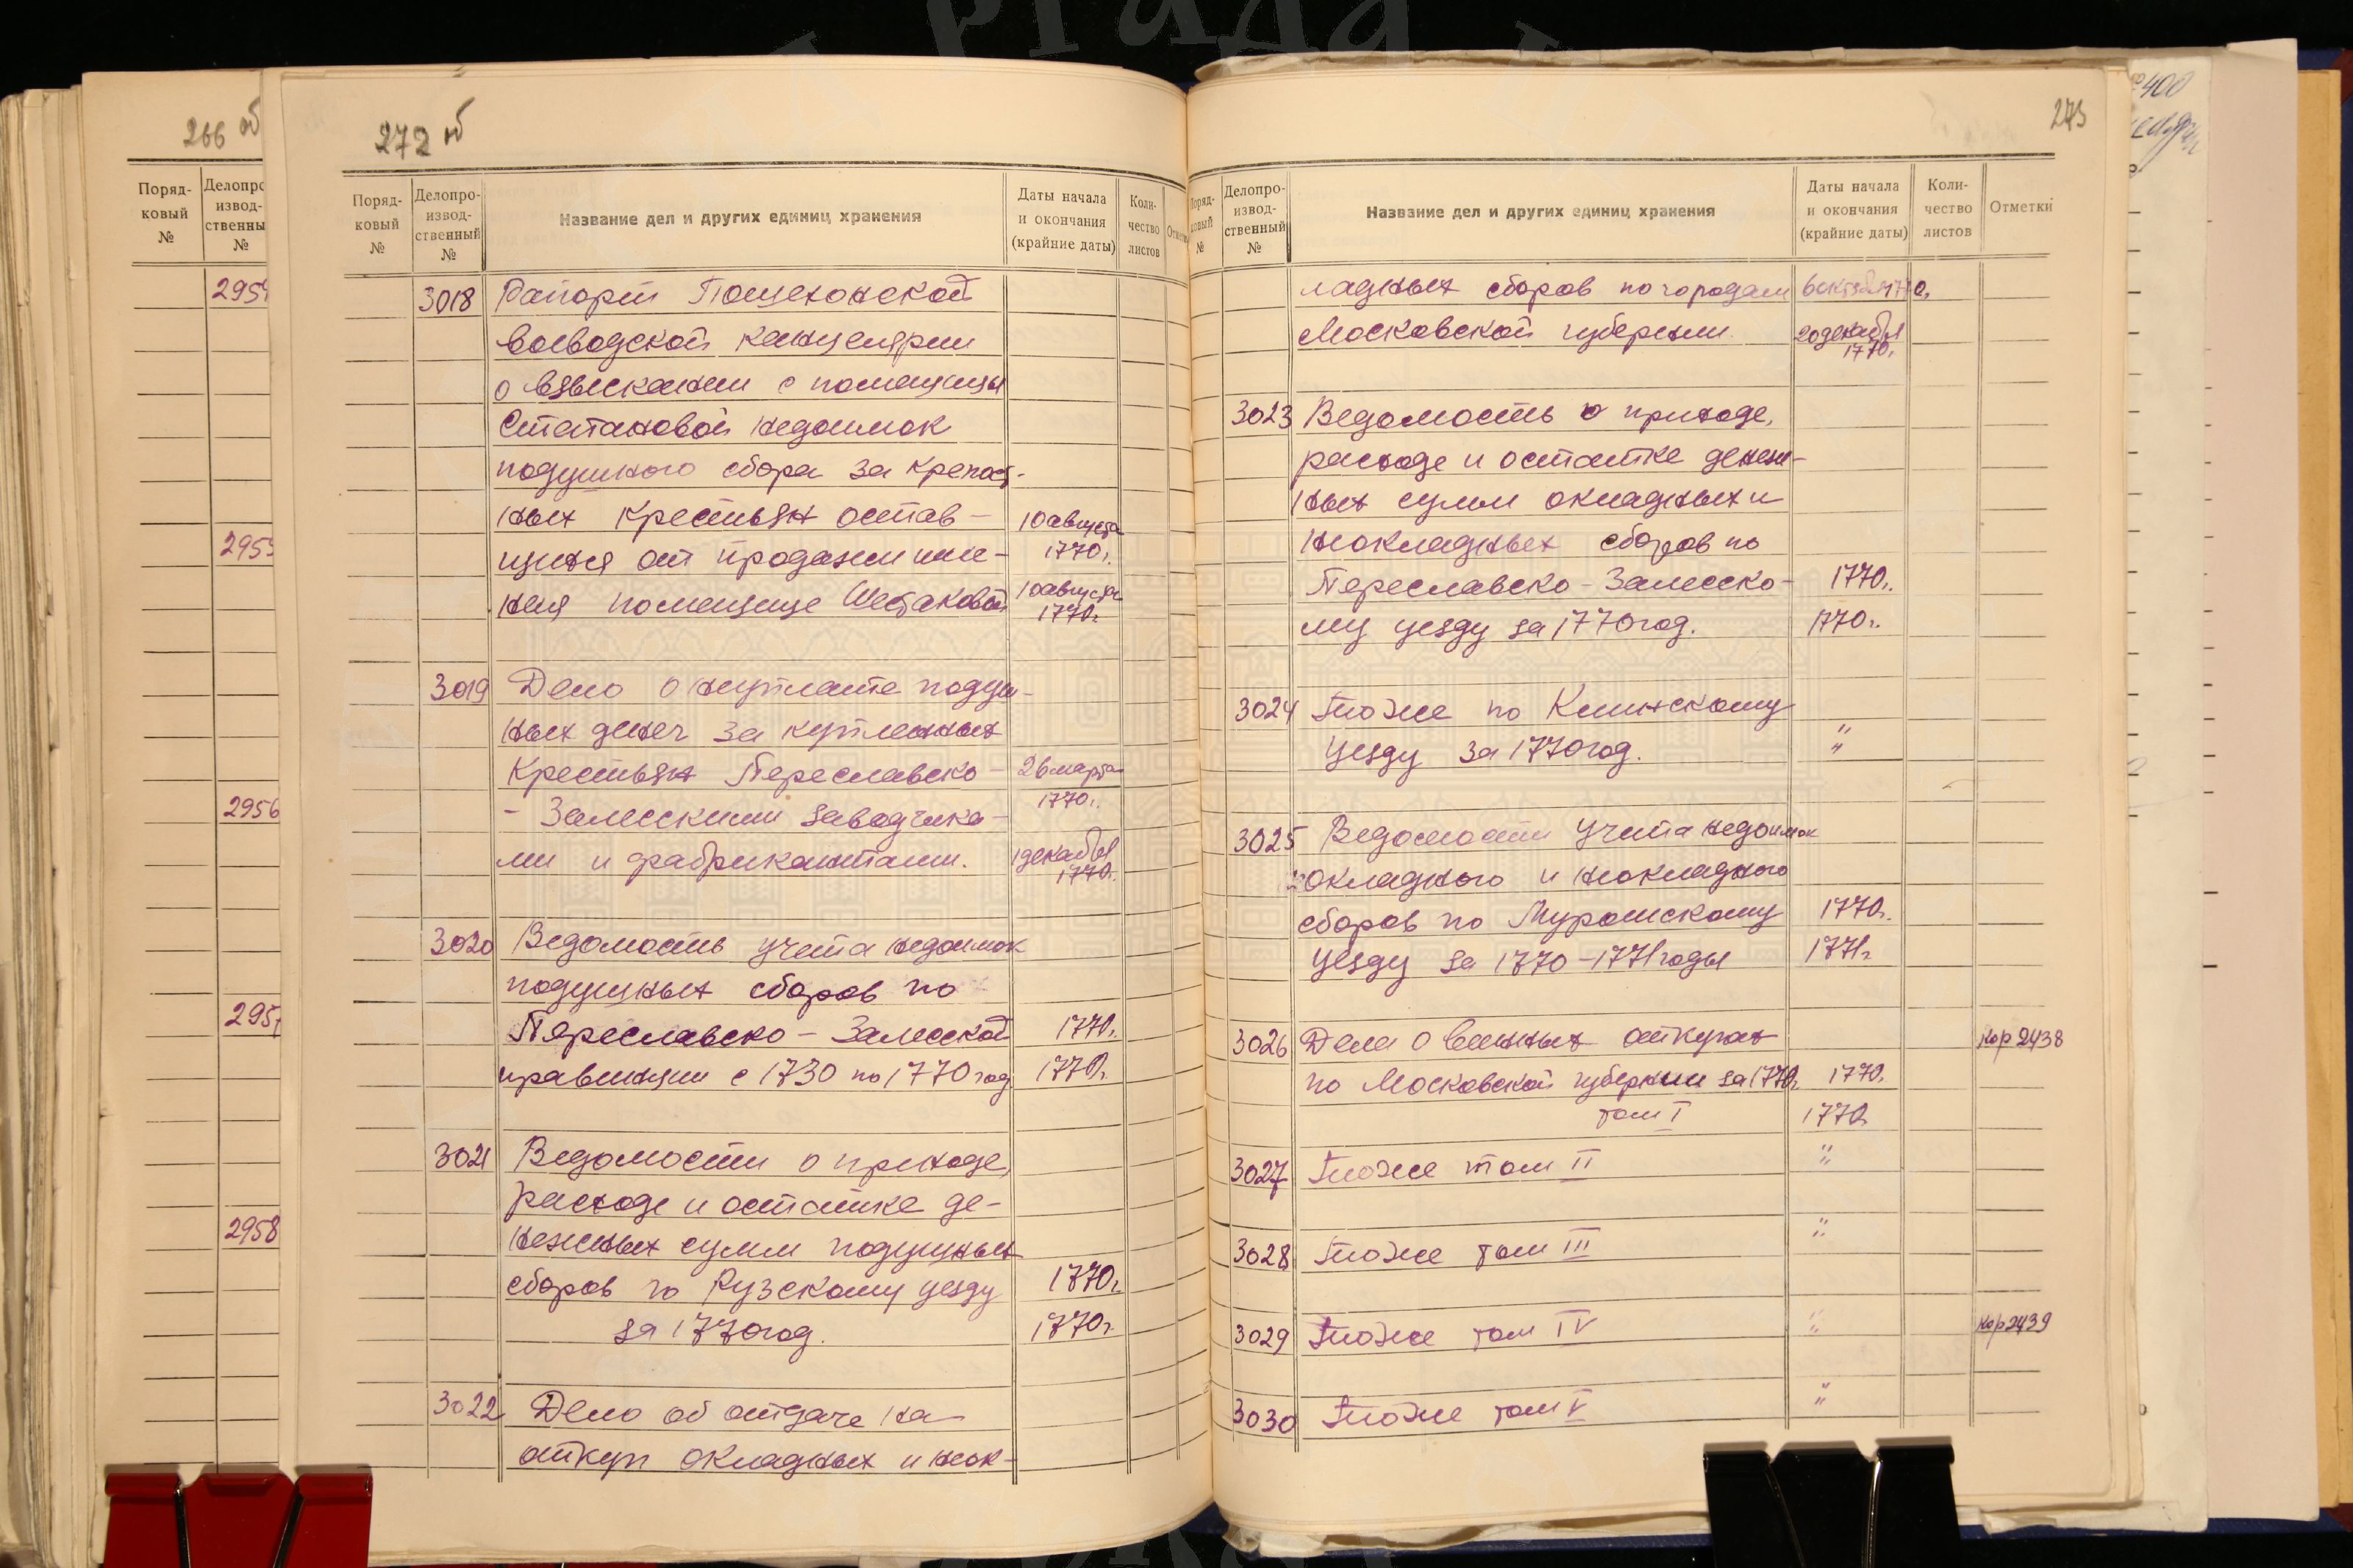 ргада
266 об
Поряд-
ковый
№
Делопро
извод-
ственны
№
2955
2956
2958
272 об
Поряд-
ковый
№
Делопро-
извод-
ственный
№
Название дел и других единиц хранения
Даты начала
и окончания
(крайние даты)
Коли-
чество
листов
3018 Рапорт Пошехонской
воеводской канцелярии
о взыскании с помещицы
недоимок
подушного сбора за крепост-
ных крестьян остав- 10 августа
щихся от продажи име- 1770г.
ния помещице Шестаковой 10 августа
1770г.
3019 Дело о неуплате подуш-
ных денег за купленных
крестьян Переславско- 26 марта
- Залесскими заводчика- 1770г.
ми и фабрикантами. 1 декабря
1770г.
3020 Ведомость учета недоимок
подушных сборов по
Переславско - Залесской 1770г.
провинции с 1730 по 1770 год 1770г.
3021 Ведомости о приходе,
расходе и остатке де-
нежных сумм подушных
сборов по Рузскому уезду 1770г.
за 1770 год. 1770г.
3022 Дело об отдаче на
откуп окладных и неок-
273
Поряд-
ковый
№
Делопро-
извод-
ственный
№
Название дел и других единиц хранения
Даты начала
и окончания
(крайние даты)
Коли-
чество
листов
Отметки
ладных сборов по городам
Московской губернии. 20 декабря
1770г.
3023 Ведомость о приходе,
расходе и остатке денеж-
ных сумм окладных и
неокладных сборов по
Переславско - Залесско- 1770г.
му уезду за 1770 год. 1770г.
3024 То же по Клинскому "
уезду за 1770 год. "
3025 Ведомости учета недоимок
окладного и неокладного
сборов по Муромскому 1770г.
уезду за 1770 - 1771 годы 1771г.
3026 Дела о винных откупах кор 2438
по Московской губернии за 1770г. 1770г.
том I 1770г.
3027 То же том II "
3028 То же том III "
3029 То же том IV " кор 2439
3030 То же том V "